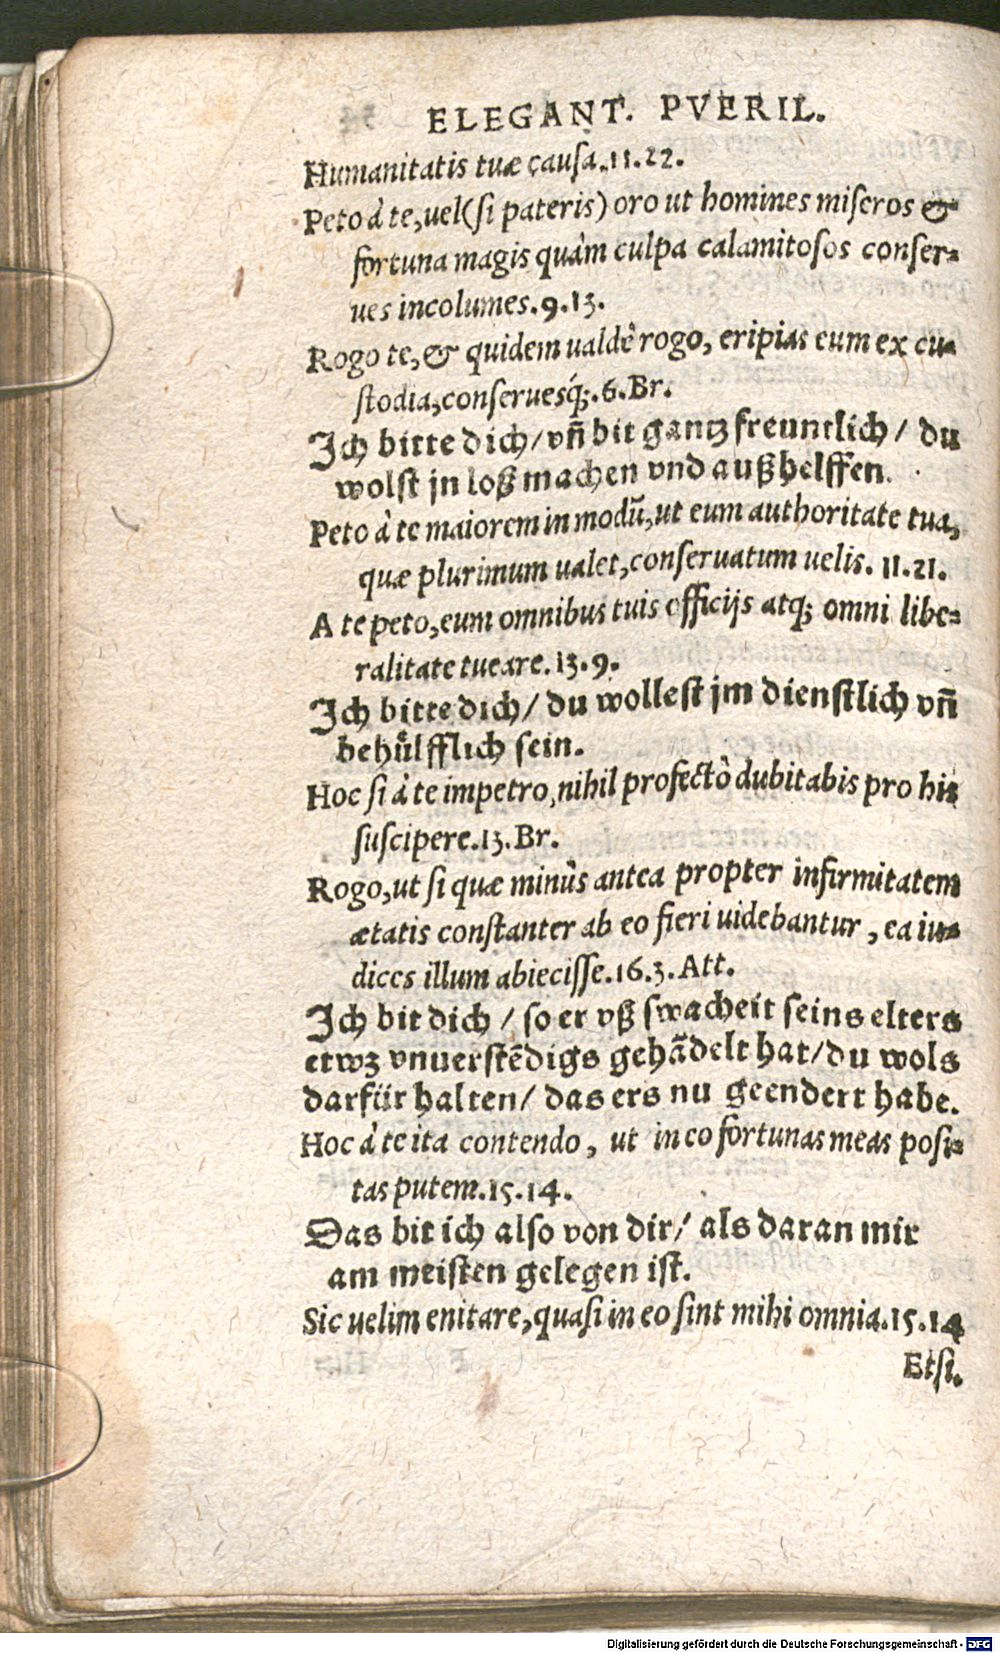 ELEGANT. PVERIL.
Humanitatis tuæ causa.11.22.
Peto à te,uel(si pateris) oro ut homines miseros &
fortuna magis quàm culpa calamitosos conser-
ues incolumes.9.13.
Rogo te,& quidem ualdè rogo, eripias eum ex cu-
stodia,conseruesq́;.6.Br.
Ich bitte dich/vñ bit gantz freuntlich/ du
wolst jn loß machen vnd außhelffen.
Peto à te maiorem in modū,ut eum authoritate tua,
quæ plurimum ualet,conseruatum uelis. 11.21.
A te peto,eum omnibus tuis officijs atq; omni libe-
ralitate tueare. 13.9.
Ich bitte dich/ du wollest jm dienstlich vñ
behülfflich sein.
Hoc si à te impetro,nihil profectò dubitabis pro his
suscipere.13.Br.
Rogo,ut si quæ minùs antea propter infirmitatem
ætatis constanter ab eo fieri uidebantur, ea iu-
dices illum abiecisse.16.3.Att.
Ich bit dich / so er vß swacheit seins elters
etwz vnuerstēdigs gehādelt hat/du wols
darfür halten/ das ers nu geendert habe.
Hoc à te ita contendo, ut in eo fortunas meas posi-
tas putem.15.14.
Das bit ich also von dir/ als daran mir
am meisten gelegen ist.
Sic uelim enitare,quasi in eo sint mihi omnia.15.14
Etsi.
Digitalisierung gefördert durch die Deutsche Forschungsgemeinschaft - DFG